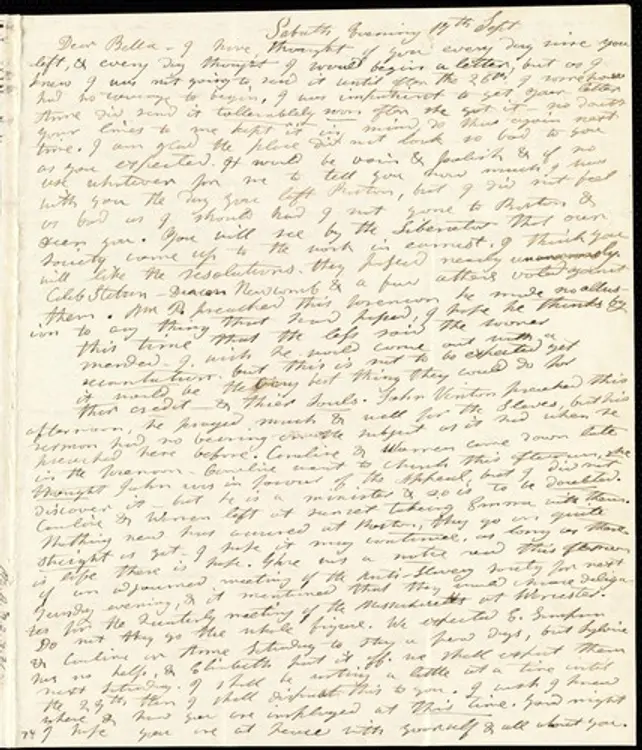 Sabath Evening 17th Sept
Dear Bella - I have thought of you every day since you
left, & every day thought I would begin a letter, but as I
knew I was not going to send it until after the 26th I somehow
had no courage to begin, I was impatient to get your letter
Anne did send it tollerablely soon after she got it - no doubt
your lines to me kept it in mind do thus again next
time. I am glad the place did not look so bad to you
as you expected. It would be vain & foolish & of no
use whatever for me to tell you how much I was
with you the day you left Boston, but I did not feel
as bad as I should had I not gone to Boston &
seen you. You will see by the Liberator that our
society came up to the work in earnest. I think you
will like the resolutions. they passed nearly unanimously.
Caleb Stetson - Deacon Newcomb & a few others voted against
them. Mr P. preached this forenoon he made no allus-
ion to any thing that had passed, I hope he thinks by
this time that the left said the sooner
mended. I wish he would come out with a
recantation. but this is not to be expected yet
it would be the very best thing they could do for
their credit - & their souls. John Vinton preached this
afternoon, he prayed much & well for the Slaves, but his
sermon had no bearing on the subject as it had when he
preached here before. Caroline & Warren came down late
in the forenoon Caroline went to church this afternoon, she
thought John was in favour of the Appeal, but I did not
discover it but he is a minister & so is to be doubted.
Caroline & Warren left at sunset taking Emma with them.
Nothing new has occured at Boston. they go on quite
straight as yet - I hope it may continue. as long as there
is life there is hope. There was a notice read this afternoon
of an adjourned meeting of the Anti-Slavery society for next
Sunday evening, & it mentioned that they would choose delega-
tes for the Quarterly meeting of the Massachusetts at Worcester.
Do not they go the whole figure. We expected E.
& Caroline on home Saturday to stay a few days, but Sylvia
has no help, & Elizabeth put it off. we shall expect them
next Saturday. I shall be writing a little at a time until
the 29th then I shall dispatch this to you. I wish I knew
where & how you are employed at this time. Good night
I hope you are at peace with yourself & all about you.